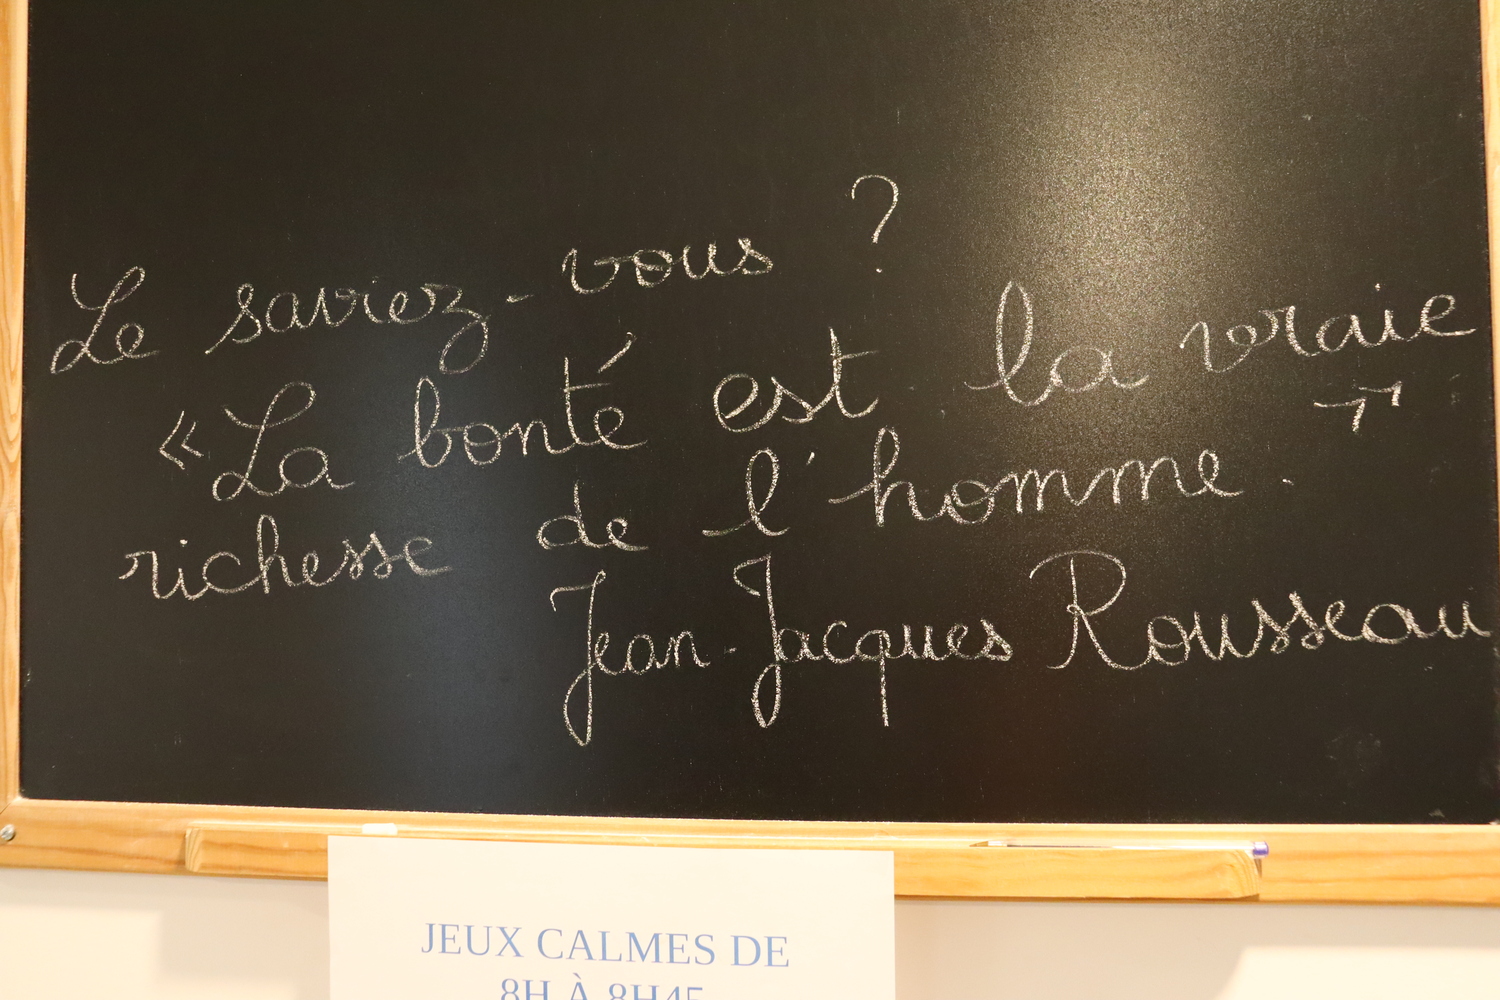 Le saviez-vous ?
« La bonté est la vraie
richesse de l'homme. »
Jean-Jacques Rousseau
JEUX CALMES DE
8H À 8H45